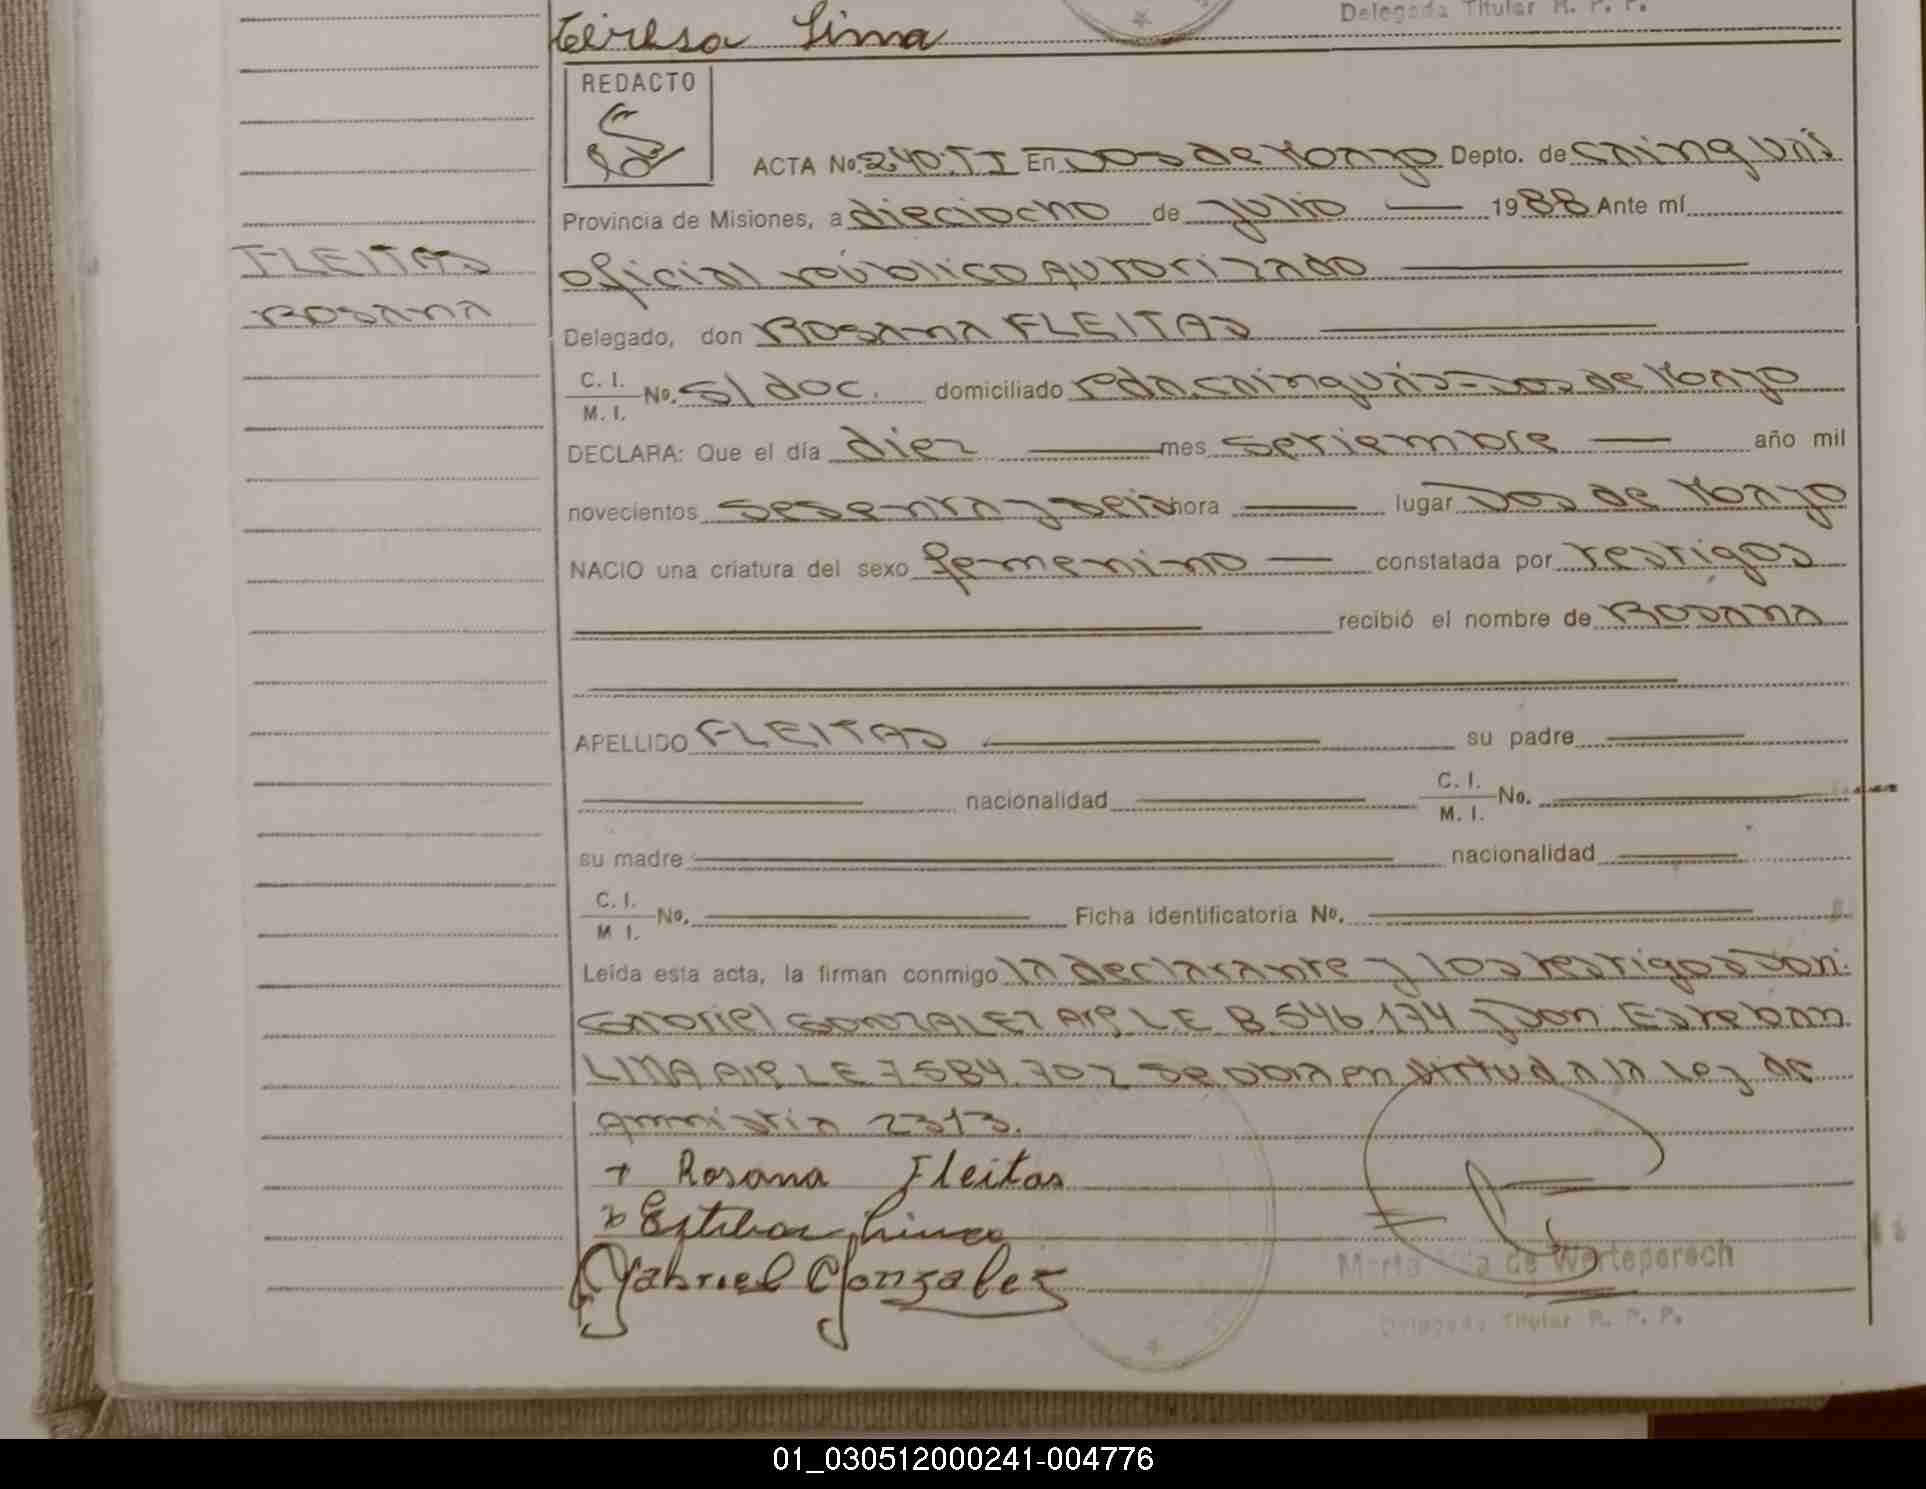 Teresa Lima
Delegada Titular R. P. P.
REDACTO
ACTA No. 240. TI En Dos de Mayo Depto. de Cainguás
Provincia de Misiones, a dieciocho de julio 1988 Ante mí
FLEITAS
oficial público autorizado
ROSANA
Delegado, don ROSANA FLEITAS
C. I.
M. I. No. S/doc. domiciliado Pdo. Cainguás-Dos de Mayo
DECLARA: Que el día diez mes setiembre año mil
novecientos sesenta y seis hora lugar Dos de Mayo
NACIO una criatura del sexo femenino constatada por testigos
recibió el nombre de Rosana
APELLIDO FLEITAS su padre
nacionalidad C. I.
M. I. No.
su madre nacionalidad
C. I.
M I. No. Ficha identificatoria No.
Leída esta acta, la firman conmigo la declarante y los testigos Don:
Gabriel GONZALEZ Arg. LE 8.546.174 y Don Esteban
LIMA Arg. LE 7.584.702 se obra en virtud a la Ley de
Amnistia 2313.
+ Rosana Fleitas
Esteban Lima
Gabriel Gonzalez
de Werteperech
Delegada Titular R. P. P.
01_030512000241-004776